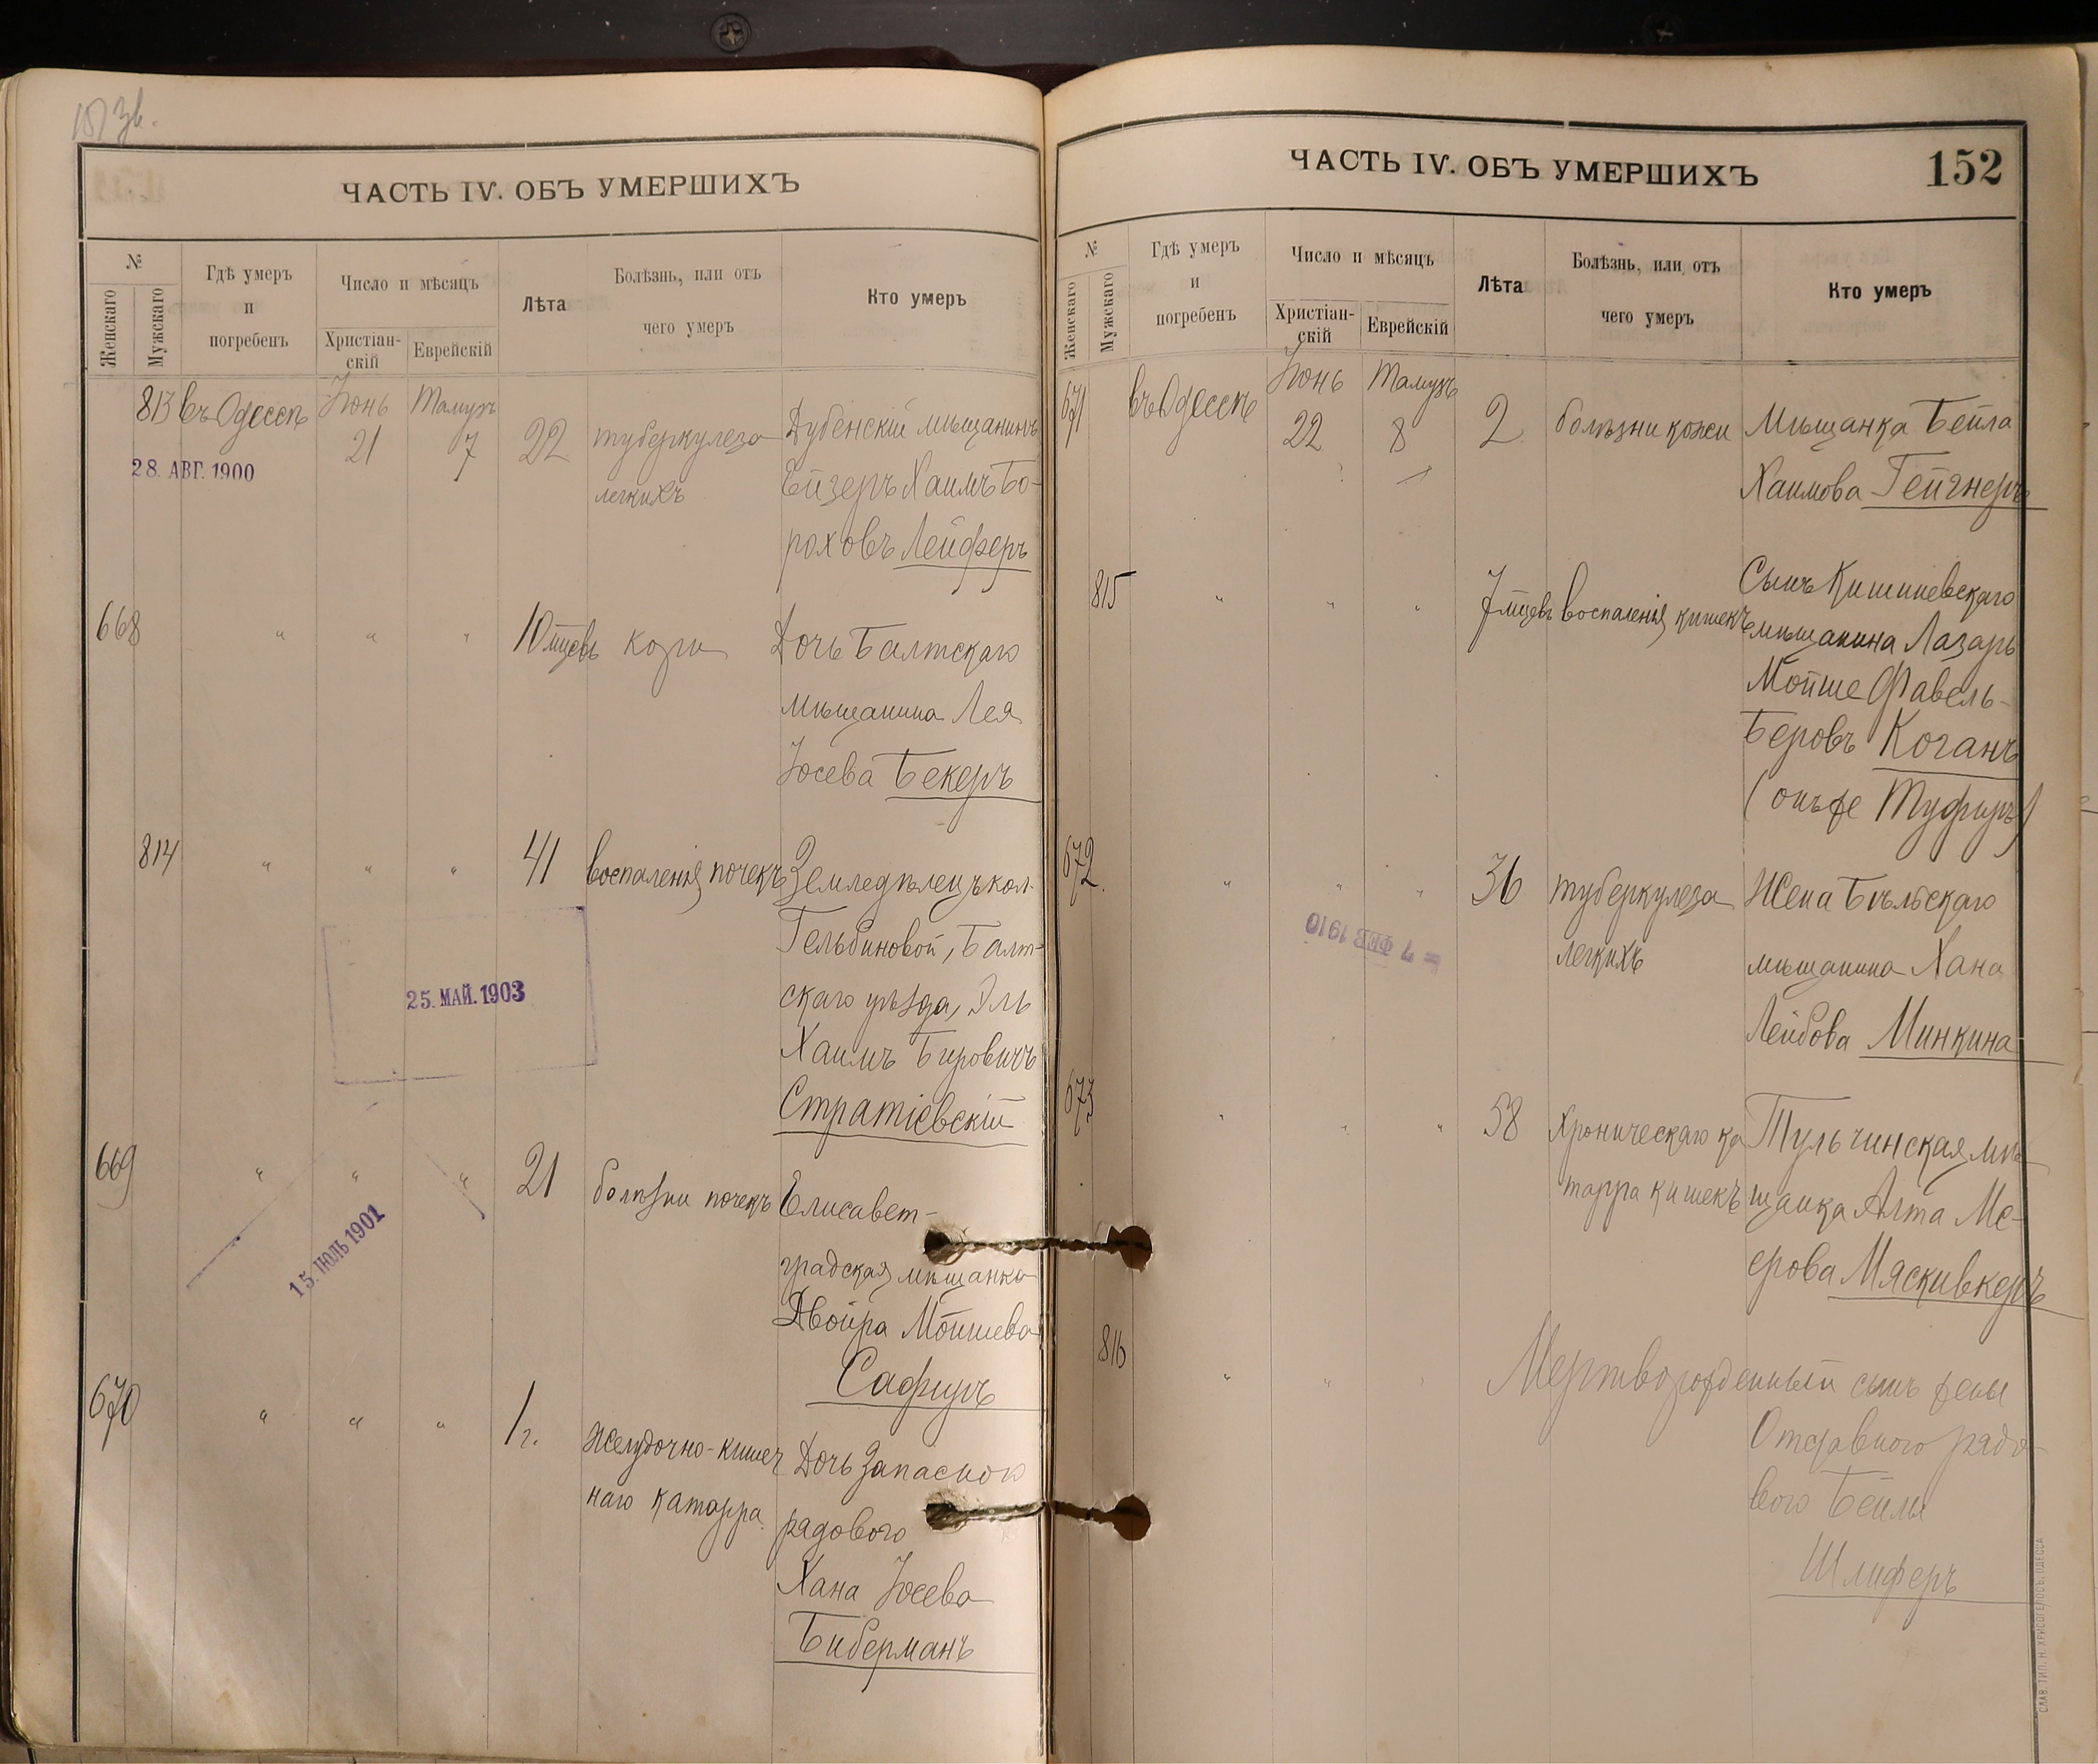 ЧАСТЬ IV. ОБЪ УМЕРШИХЪ
№
Женскаго
Мужскаго
Гдѣ умеръ
и
погребенъ
Число и мѣсяцъ
Христіан-
скій
Еврейскій
Лѣта
Болѣзнь, или отъ
чего умеръ
Кто умеръ
813 въ Одессѣ Іюнь Тамузъ
21 7 22 туберкулеза Дубенскій мѣщанинъ
28. АВГ. 1900
легкихъ Ейзеръ Хаимъ Бо-
роховъ Лейферъ
668 " " " 10 мцевъ кори Дочь Балтскаго
мѣщанина Лея
Іосева Бекеръ
814 " " " 41 воспаленія почекъ Земледѣлецъ кол.
Гельбиновой, Балт-
скаго уѣзда, Эль
25. МАЙ. 1903
Хаимъ Беровичъ
Стратіевскій
669 " " " 21 болѣзни почекъ Елисавет-
градская мѣщанка
15. ІЮЛЬ 1901
Двойра Мошева
Сафиръ
670 " " " 1 г. Желудочно-кишеч
наго катарра Дочь запасного
рядового
Хана Іосева
Биберманъ
ЧАСТЬ IV. ОБЪ УМЕРШИХЪ
152
№
Женскаго
Мужскаго
Гдѣ умеръ
и
погребенъ
Число и мѣсяцъ
Христіан-
скій
Еврейскій
Лѣта
Болѣзнь, или отъ
чего умеръ
Кто умеръ
671 въ Одессѣ Іюнь Тамузъ
22 8 2 болѣзни кожи Мѣщанка Бейла
Хаимова Гейгнеръ
815 " " " 7 мцевъ воспаленія кишекъ Сынъ Кишиневскаго
мѣщанина Лазарь
Мойше Фавель-
Беровъ Коганъ
(онъ же Туфиръ)
672 " " " 36 туберкулеза Жена Бѣльскаго
= 7 ФЕВ 1910
легкихъ мѣщанина Хана
Лейбова Минкина
673 " " " 58 Хроническаго ка Тульчинская мѣ
тарра кишекъ щанка Алта Ме-
ерова Мяскивкеръ
816 " " " Мертворожденный сынъ жены
Отставного рядо-
вого Бейлы
Шлиферъ
СЛАВ. ТИП. Н. ХРИСОГЕЛОСЪ, ОДЕССА